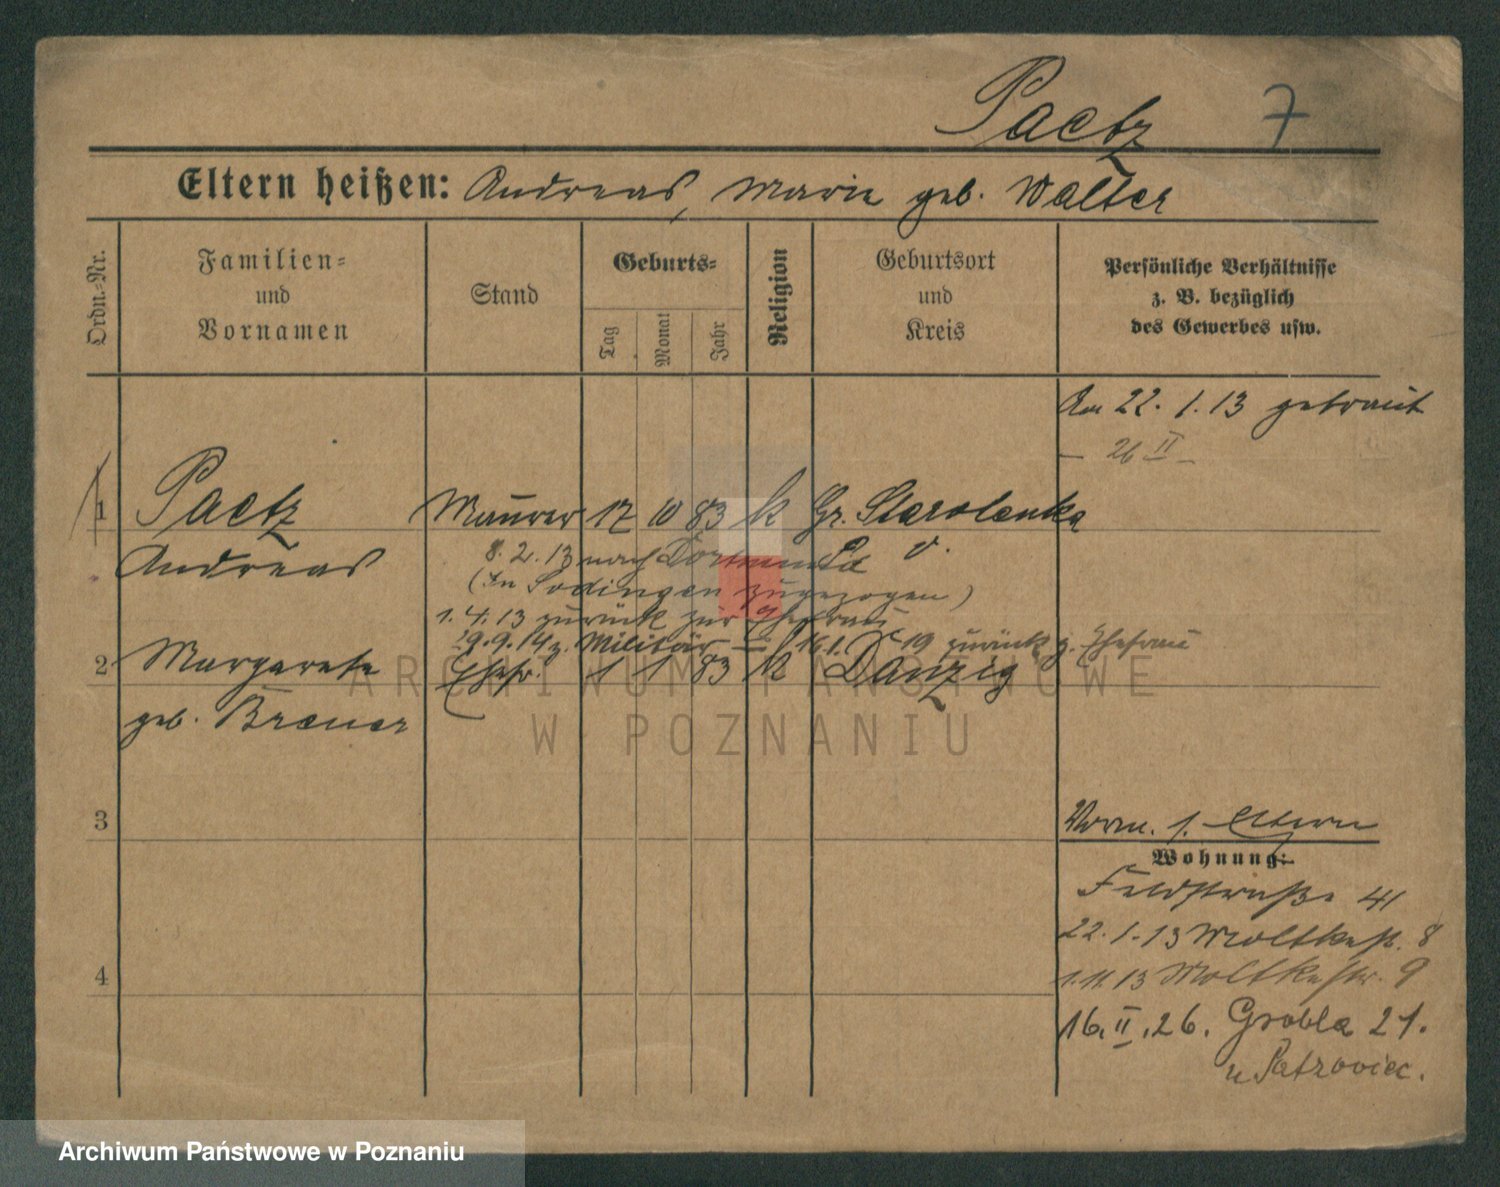 Paetz 7
Eltern heißen: Andreas, Marie geb. Walter
Ordn.-Nr.
Familien-
und
Vornamen
Stand
Geburts-
Tag
Monat
Jahr
Religion
Geburtsort
und
Kreis
Persönliche Verhältnisse
z. B. bezüglich
des Gewerbes usw.
Am 22. 1. 13 getraut
– 26 II –
1 Paetz Maurer 17 10 83 k Gr. Starolenka
Andreas
8. 2. 13 nach Dortmund
(In Sodingen zugezogen)
1. 4. 13 zurück zur Ehefrau
29.9.14 z. Militär 19 zurück z. Ehefrau
2 Margarete Ehefr. 1 1 83 k Danzig
geb. Brauer
3
4
Vorm. s. Eltern
Wohnung:
Feldstraße 41
22. 1. 13 Moltkestr. 8
1. 11. 13 Moltkestr. 9
16. II. 26. Grobla 21.
u Patzoviec.
ARCHIWUM PAŃSTWOWE
W POZNANIU
Archiwum Państwowe w Poznaniu